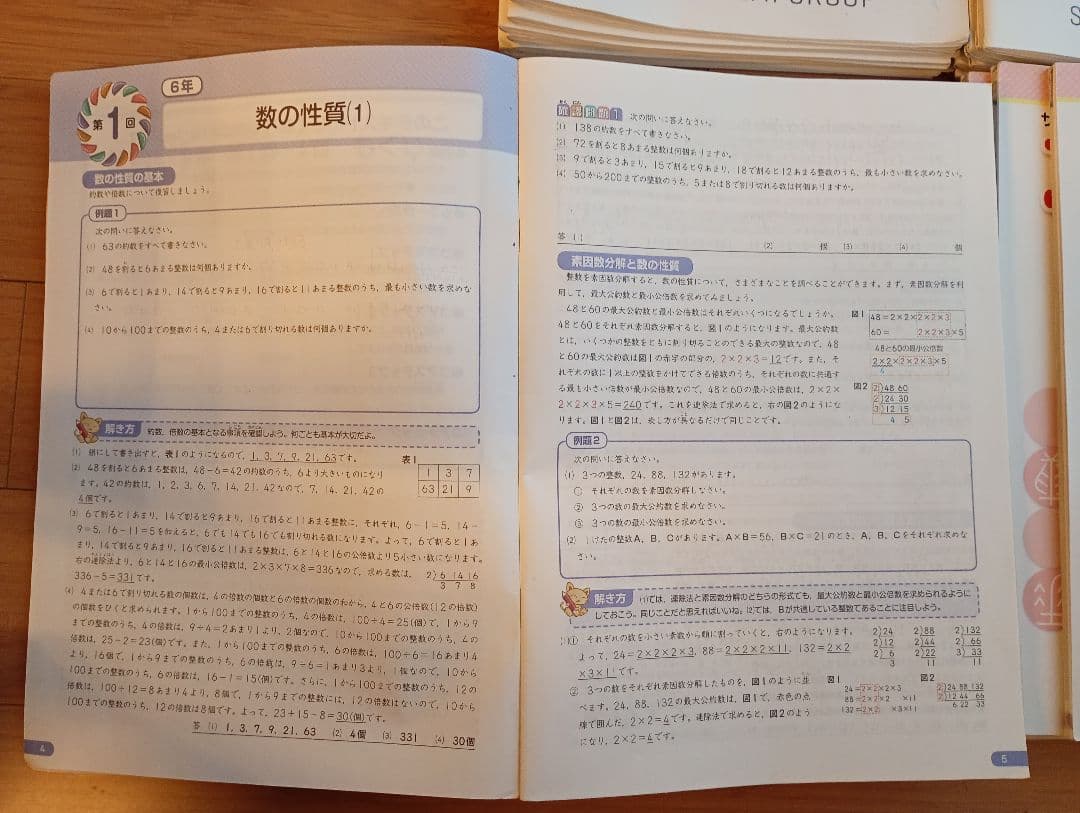 6年
第1回
数の性質(1)
数の性質の基本
約数や倍数について復習しましょう。
例題1
次の問いに答えなさい。
(1) 63の約数をすべて書きなさい。
(2) 48を割ると6あまる整数は何個ありますか。
(3) 6で割ると1あまり、14で割ると9あまり、16で割ると11あまる整数のうち、最も小さい数を求めな
さい。
(4) 10から100までの整数のうち、4または6で割り切れる数は何個ありますか。
解き方
約数、倍数の基本となる事項を確認しよう。何ごとも基本が大切だよ。
(1) 組にして書き出すと、表1のようになるので、1, 3, 7, 9, 21, 63です。
表1
1 3 7
63 21 9
(2) 48を割ると6あまる整数は、48-6=42の約数のうち、6より大きいものになり
ます。42の約数は、1, 2, 3, 6, 7, 14, 21, 42なので、7, 14, 21, 42の
4個です。
(3) 6で割ると1あまり、14で割ると9あまり、16で割ると11あまる整数に、それぞれ、6-1=5, 14-
9=5, 16-11=5を加えると、6でも14でも16でも割り切れる数になります。よって、6で割ると1あ
まり、14で割ると9あまり、16で割ると11あまる整数は、6と14と16の公倍数より5小さい数になります。
右の連除法より、6と14と16の最小公倍数は、2×3×7×8=336なので、求める数は、
336-5=331です。
2)6 14 16
3 7 8
(4) 4または6で割り切れる数の個数は、4の倍数の個数と6の倍数の個数の和から、4と6の公倍数(12の倍数)
の個数をひくと求められます。1から100までの整数のうち、4の倍数は、100÷4=25(個)で、1から9
までの整数のうち、4の倍数は、9÷4=2あまり1より、2個なので、10から100までの整数のうち、4の
倍数は、25-2=23(個)です。また、1から100までの整数のうち、6の倍数は、100÷6=16あまり4
より、16個で、1から9までの整数のうち、6の倍数は、9÷6=1あまり3より、1個なので、10から
100までの整数のうち、6の倍数は、16-1=15(個)です。さらに、1から100までの整数のうち、12の
倍数は、100÷12=8あまり4より、8個で、1から9までの整数には、12の倍数はないので、10から
100までの整数のうち、12の倍数は8個です。よって、23+15-8=30(個)です。
答 (1) 1, 3, 7, 9, 21, 63 (2) 4個 (3) 331 (4) 30個
4
確認問題1
次の問いに答えなさい。
(1) 138の約数をすべて書きなさい。
(2) 72を割ると8あまる整数は何個ありますか。
(3) 9で割ると3あまり、15で割ると9あまり、18で割ると12あまる整数のうち、最も小さい数を求めなさい。
(4) 50から200までの整数のうち、5または8で割り切れる数は何個ありますか。
答 (1) (2) 個 (3) (4) 個
素因数分解と数の性質
整数を素因数分解すると、数の性質について、さまざまなことを調べることができます。まず、素因数分解を利
用して、最大公約数と最小公倍数を求めてみましょう。
48と60の最大公約数と最小公倍数はそれぞれいくつになるでしょうか。
48と60をそれぞれ素因数分解すると、図1のようになります。最大公約数
とは、いくつかの整数をともに割り切ることのできる最大の整数なので、48
と60の最大公約数は図1の赤字の部分の、2×2×3=12です。また、そ
れぞれの数に1以上の整数をかけてできる倍数のうち、それぞれの数に共通す
る最も小さい倍数が最小公倍数なので、48と60の最小公倍数は、2×2×
2×2×3×5=240です。これを連除法で求めると、右の図2のようにな
ります。図1と図2は、表し方が異なるだけで同じことです。
図1
48=2×2×2×2×3
60= 2×2×3×5
48と60の最小公倍数
2×2×2×2×3×5
4
図2
2)48 60
2)24 30
3)12 15
4 5
例題2
次の問いに答えなさい。
(1) 3つの整数、24, 88, 132があります。
① それぞれの数を素因数分解しなさい。
② 3つの数の最大公約数を求めなさい。
③ 3つの数の最小公倍数を求めなさい。
(2) 1けたの整数A, B, Cがあります。A×B=56, B×C=21のとき、A, B, Cをそれぞれ求めな
さい。
解き方
(1)では、連除法と素因数分解のどちらの形式でも、最大公約数と最小公倍数を求められるように
しておこう。同じことだと思えればいいね。(2)では、Bが共通している整数であることに注目しよう。
(1)① それぞれの数を小さい素数から順に割っていくと、右のようになります。
よって、24=2×2×2×3, 88=2×2×2×11, 132=2×2
×3×11です。
2)24
2)12
2)6
3
2)88
2)44
2)22
11
2)132
2)66
3)33
11
② 3つの数をそれぞれ素因数分解したものを、図1のように並
べます。24, 88, 132の最大公約数は、図1で、赤色の点
線で囲んだ、2×2=4です。連除法で求めると、図2のよう
になり、2×2=4です。
図1
24=2×2×2×3
88=2×2×2 ×11
132=2×2 ×3×11
図2
2)24 88 132
2)12 44 66
6 22 33
5